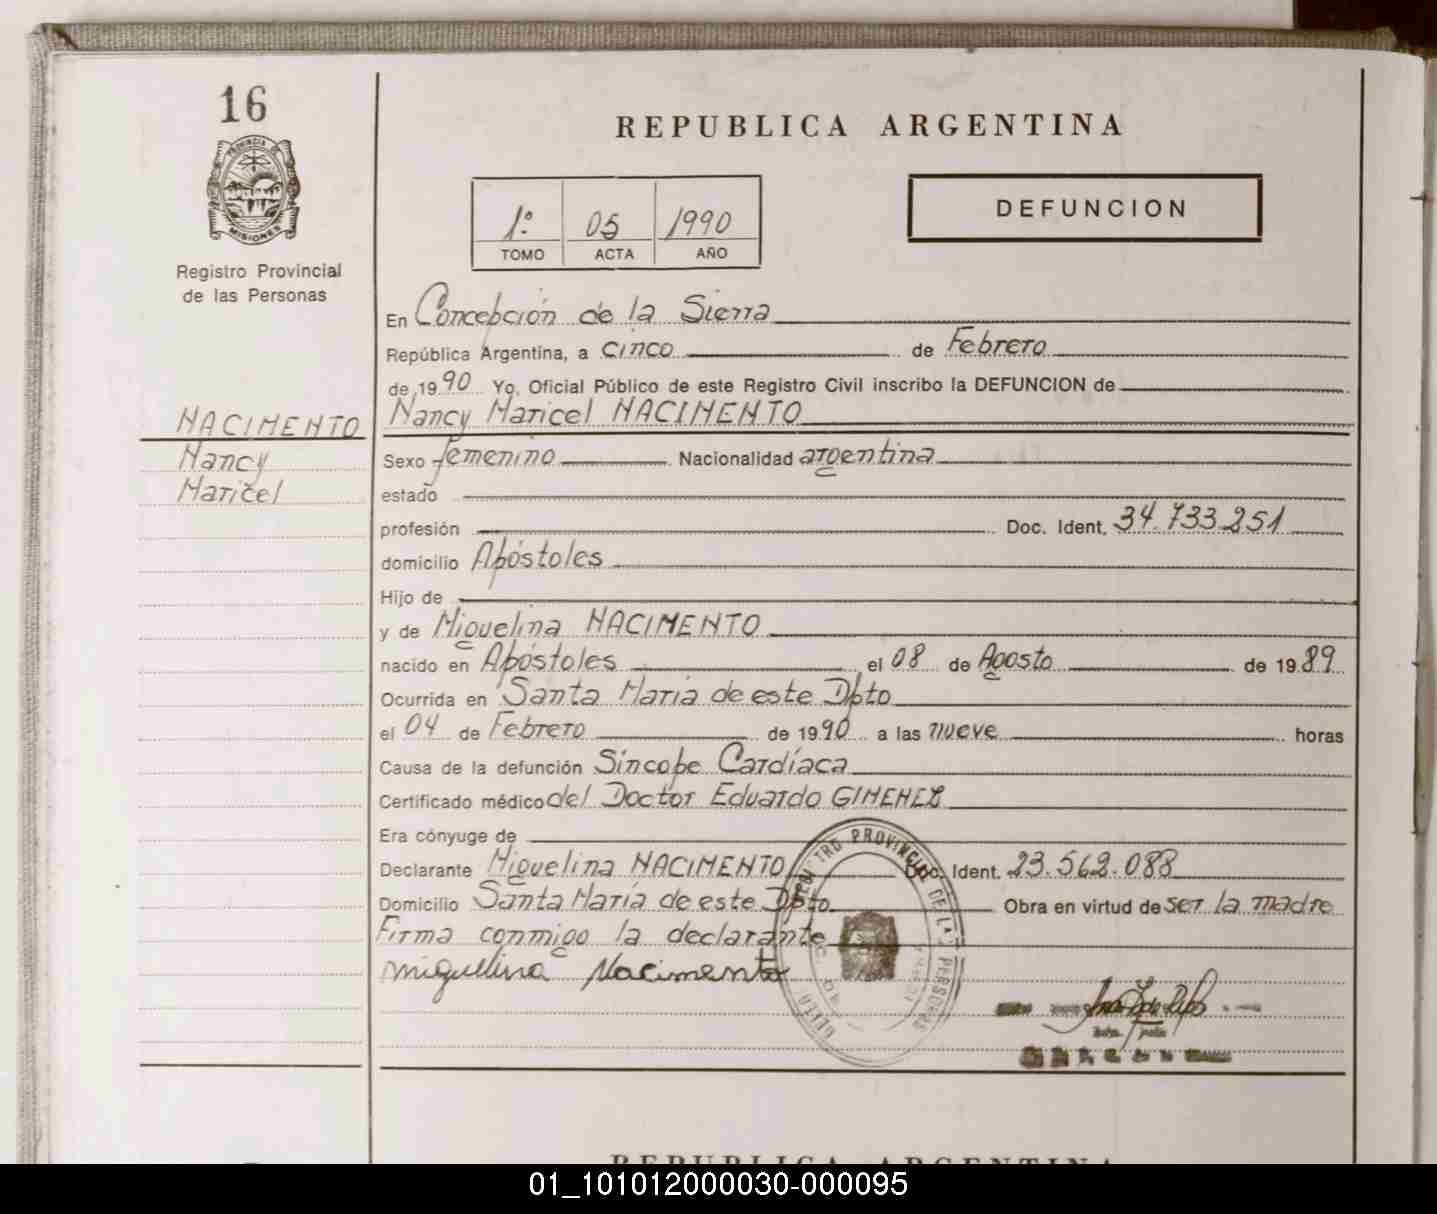 16
PROVINCIA DE
MISIONES
Registro Provincial
de las Personas
NACIMENTO
Nancy
Maricel
REPUBLICA ARGENTINA
1º 05 1990
TOMO ACTA AÑO
DEFUNCION
En Concepción de la Sierra
República Argentina, a cinco de Febrero
de 1990 Yo, Oficial Público de este Registro Civil inscribo la DEFUNCION de
Nancy Maricel NACIMENTO
Sexo femenino Nacionalidad argentina
estado
profesión Doc. Ident. 34.733.251
domicilio Apóstoles
Hijo de
y de Miguelina NACIMENTO
nacido en Apóstoles el 08 de Agosto de 1989
Ocurrida en Santa María de este Dpto
el 04 de Febrero de 1990 a las nueve horas
Causa de la defunción Síncope Cardíaca
Certificado médico del Doctor Eduardo GIMENEZ
Era cónyuge de
Declarante Miguelina NACIMENTO Doc. Ident. 23.562.088
Domicilio Santa María de este Dpto Obra en virtud de ser la madre
Firma conmigo la declarante
Miguelina Nacimento
PROVINCIAL DE LAS PERSONAS
REPUBLICA ARGENTINA
01_101012000030-000095